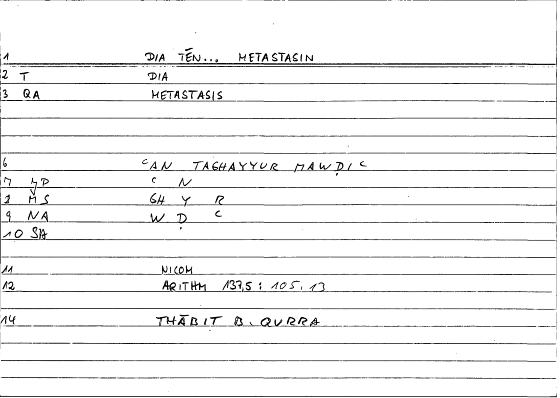 1 DIA TĒN... METASTASIN
2 T DIA
3 QA METASTASIS
6 ʿAN TAGHAYYUR MAWḌIʿ
7 ʿ N
8 MS GH Y R
9 NA W Ḍ ʿ
10 SIA
11 NICOM
12 ARITHM 137,5 : 105,13
14 THĀBIT B. QURRA